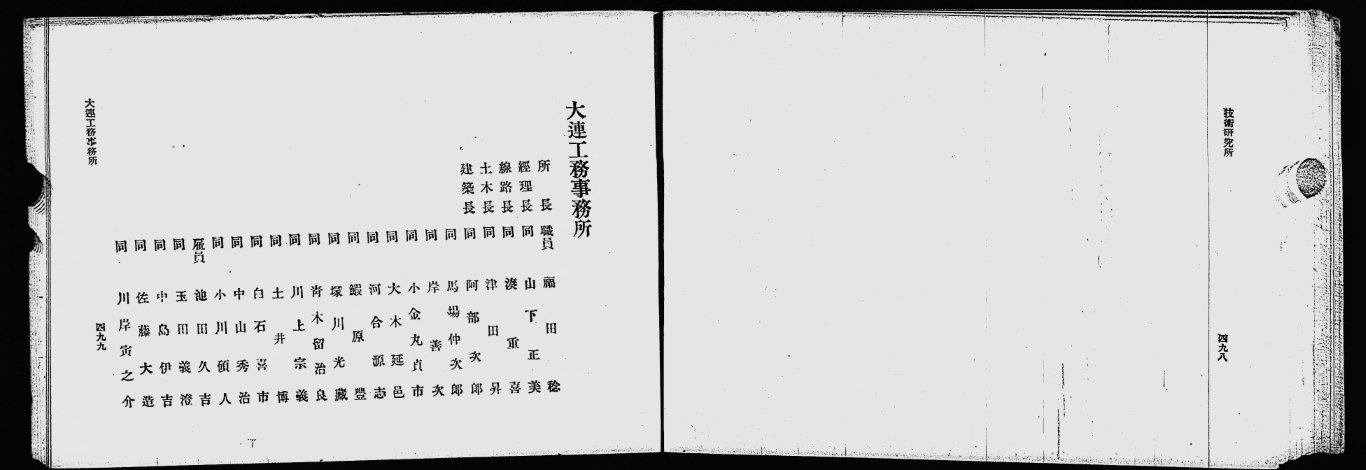 技術研究所
四九八
大連工務事務所
所長 職員 福田稔
經理長 同 山下正美
線路長 同 湊重喜
土木長 同 津田昇
建築長 同 阿部次郎
同 馬場仲次郎
同 岸善次
同 小金丸貞市
同 大木延邑
同 河合源志
同 蝦原豐
同 塚川光藏
同 青木留治良
同 川上宗義
同 土井博
同 白石喜市
同 中山秀治
同 小川碩人
雇員 池田久吉
同 玉田義澄
同 中島伊吉
同 佐藤大造
同 川岸寅之介
大連工務事務所
四九九